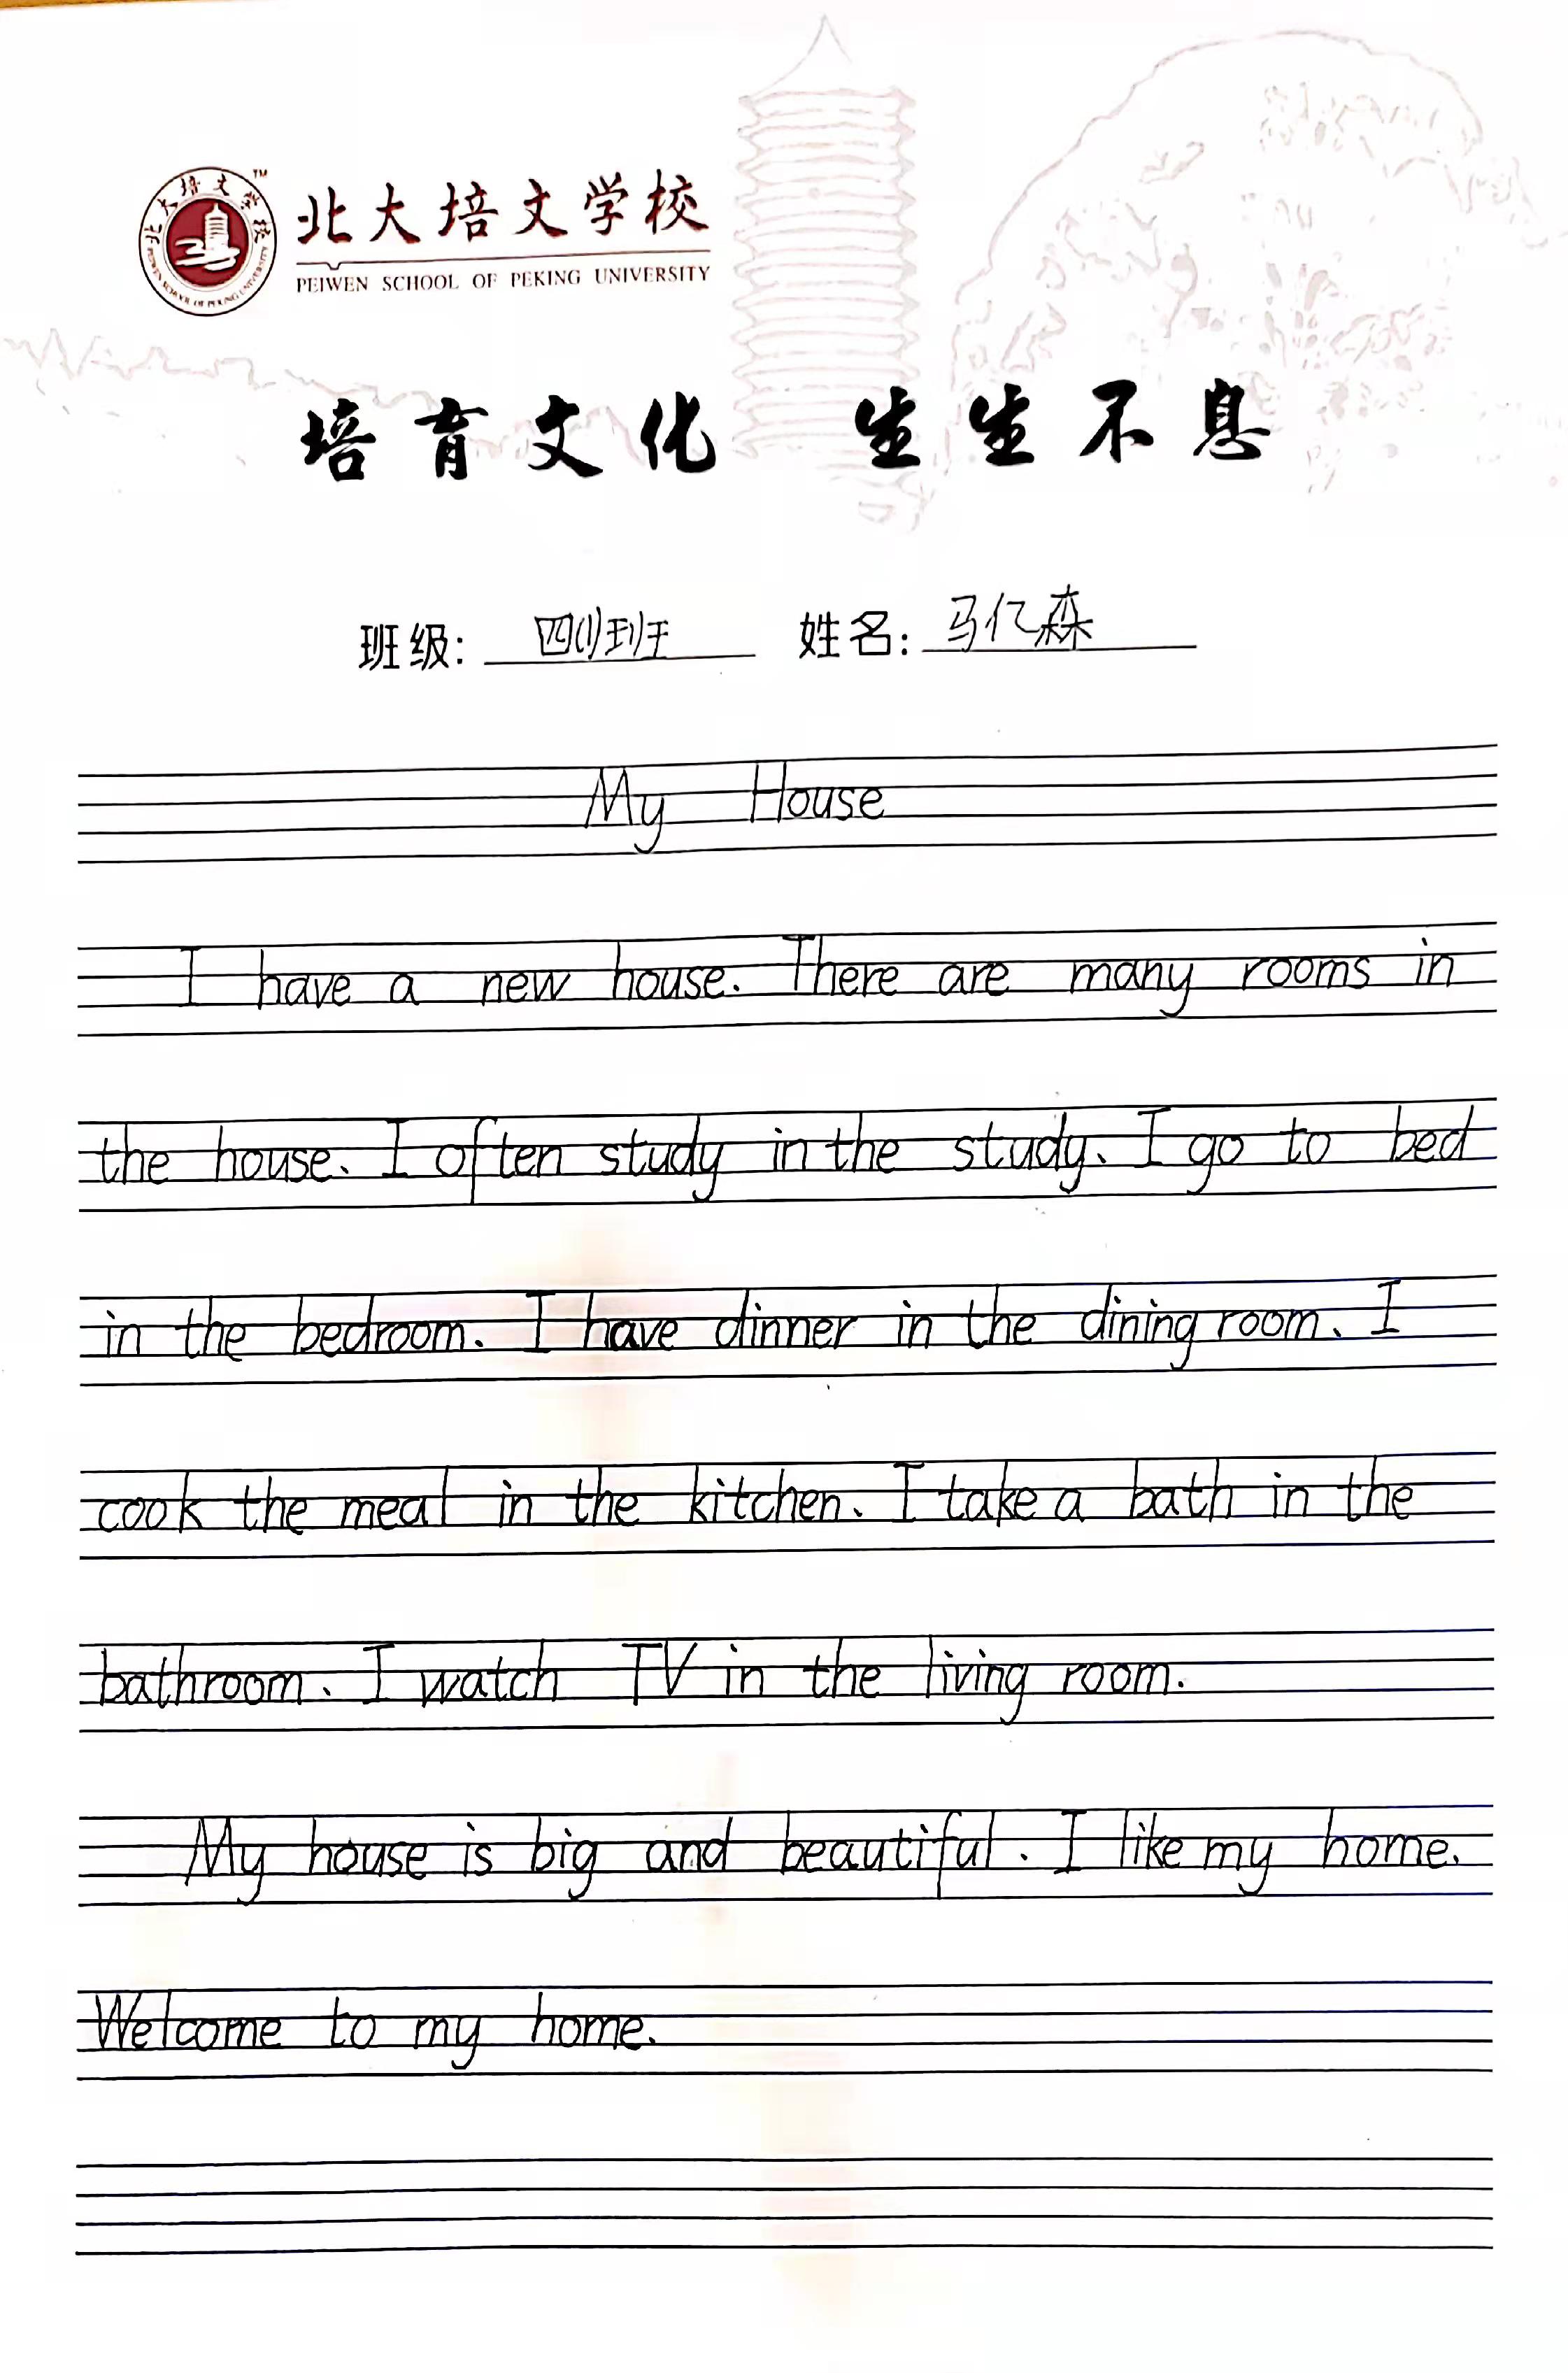 北大培文学校
PEIWEN SCHOOL OF PEKING UNIVERSITY
北大培文学校
PEIWEN SCHOOL OF PEKING UNIVERSITY
TM
培育文化 生生不息
班级: 四(1)班 姓名: 马亿森
My House
I have a new house. There are many rooms in
the house. I often study in the study. I go to bed
in the bedroom. I have dinner in the dining room. I
cook the meal in the kitchen. I take a bath in the
bathroom. I watch TV in the living room.
My house is big and beautiful. I like my home.
Welcome to my home.